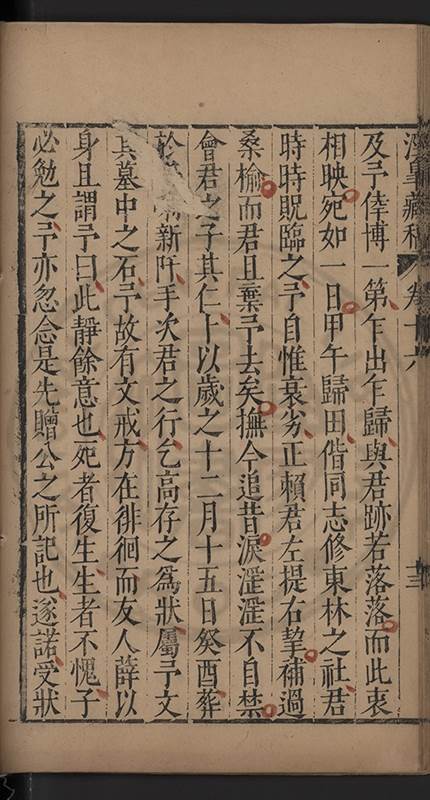 涇皐藏稿 卷十六 十三
及予倖博一第乍出乍歸與君跡若落落而此衷
相映宛如一日甲午歸田偕同志修東林之社君
時時貺臨之予自惟衰劣正賴君左提右挈補過
桑榆而君且棄予去矣撫今追昔淚涊涊不自禁
會君之子其仁卜以歲之十二月十五日癸酉葬
於新阡手次君之行乞高存之爲狀屬予文
其墓中之石予故有文戒方在徘徊而友人薛以
身且謂予曰此靜餘意也死者復生生者不愧子
必勉之予亦忽念是先贈公之所記也遂諾受狀